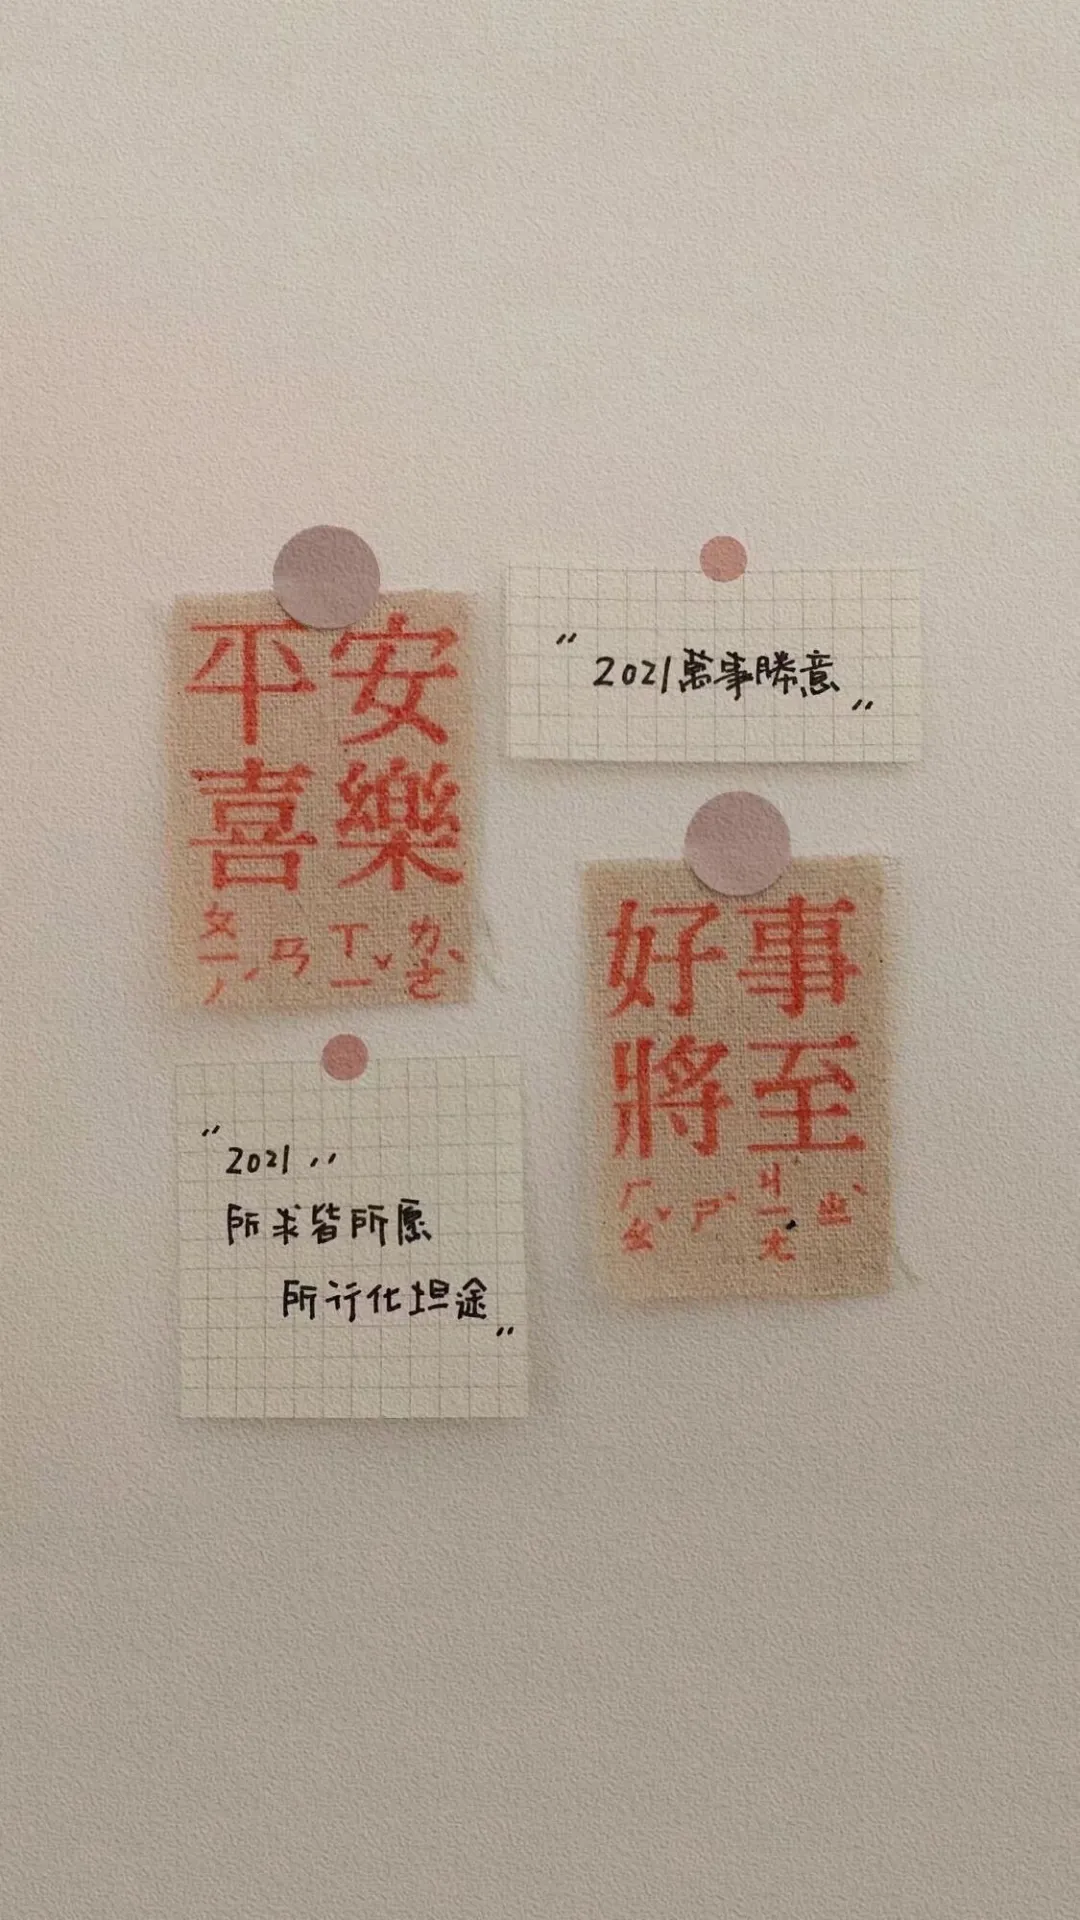 平安
喜樂
ㄆㄧㄥˊ ㄢ ㄒㄧˇ ㄌㄜˋ
"2021萬事勝意"
好事
將至
ㄏㄠˇ ㄕˋ ㄐㄧㄤ ㄓˋ
"2021,,
所求皆所愿
所行化坦途"